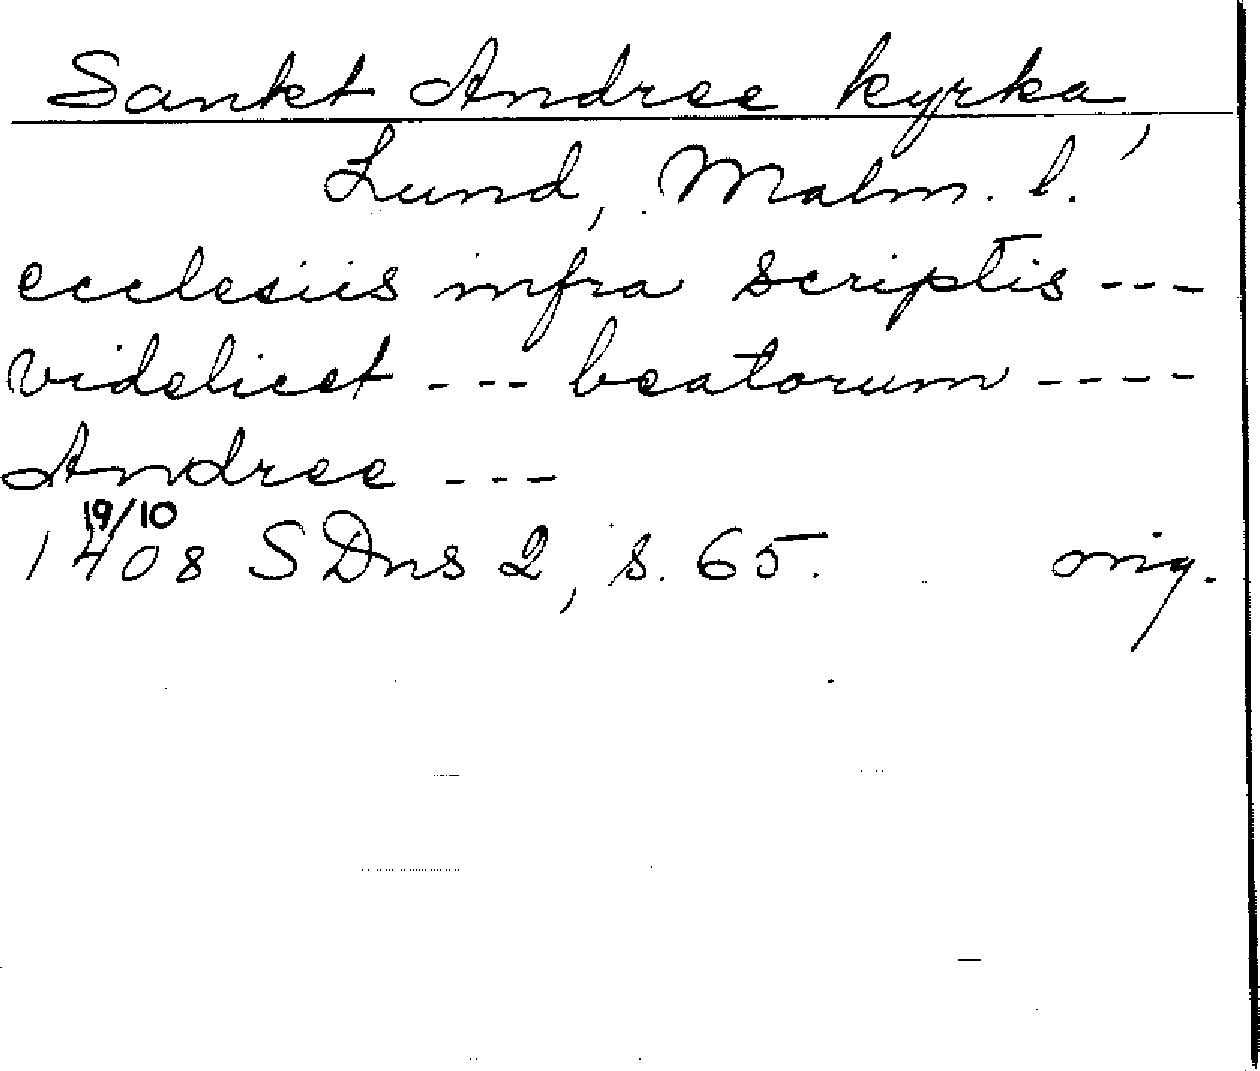 Sankt Andree kyrka,
Lund, Malm. l.
ecclesiis infra scriptis ---
videlicet --- beatorum ----
Andree ---
19/10
1408 SDns 2, s. 65. orig.